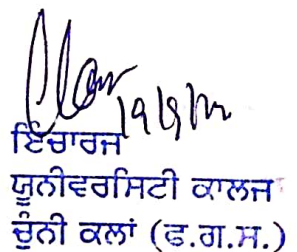 ਇੰਚਾਰਜ
ਯੂਨੀਵਰਸਿਟੀ ਕਾਲਜ
ਚੁੰਨੀ ਕਲਾਂ (ਫ.ਗ.ਸ.)